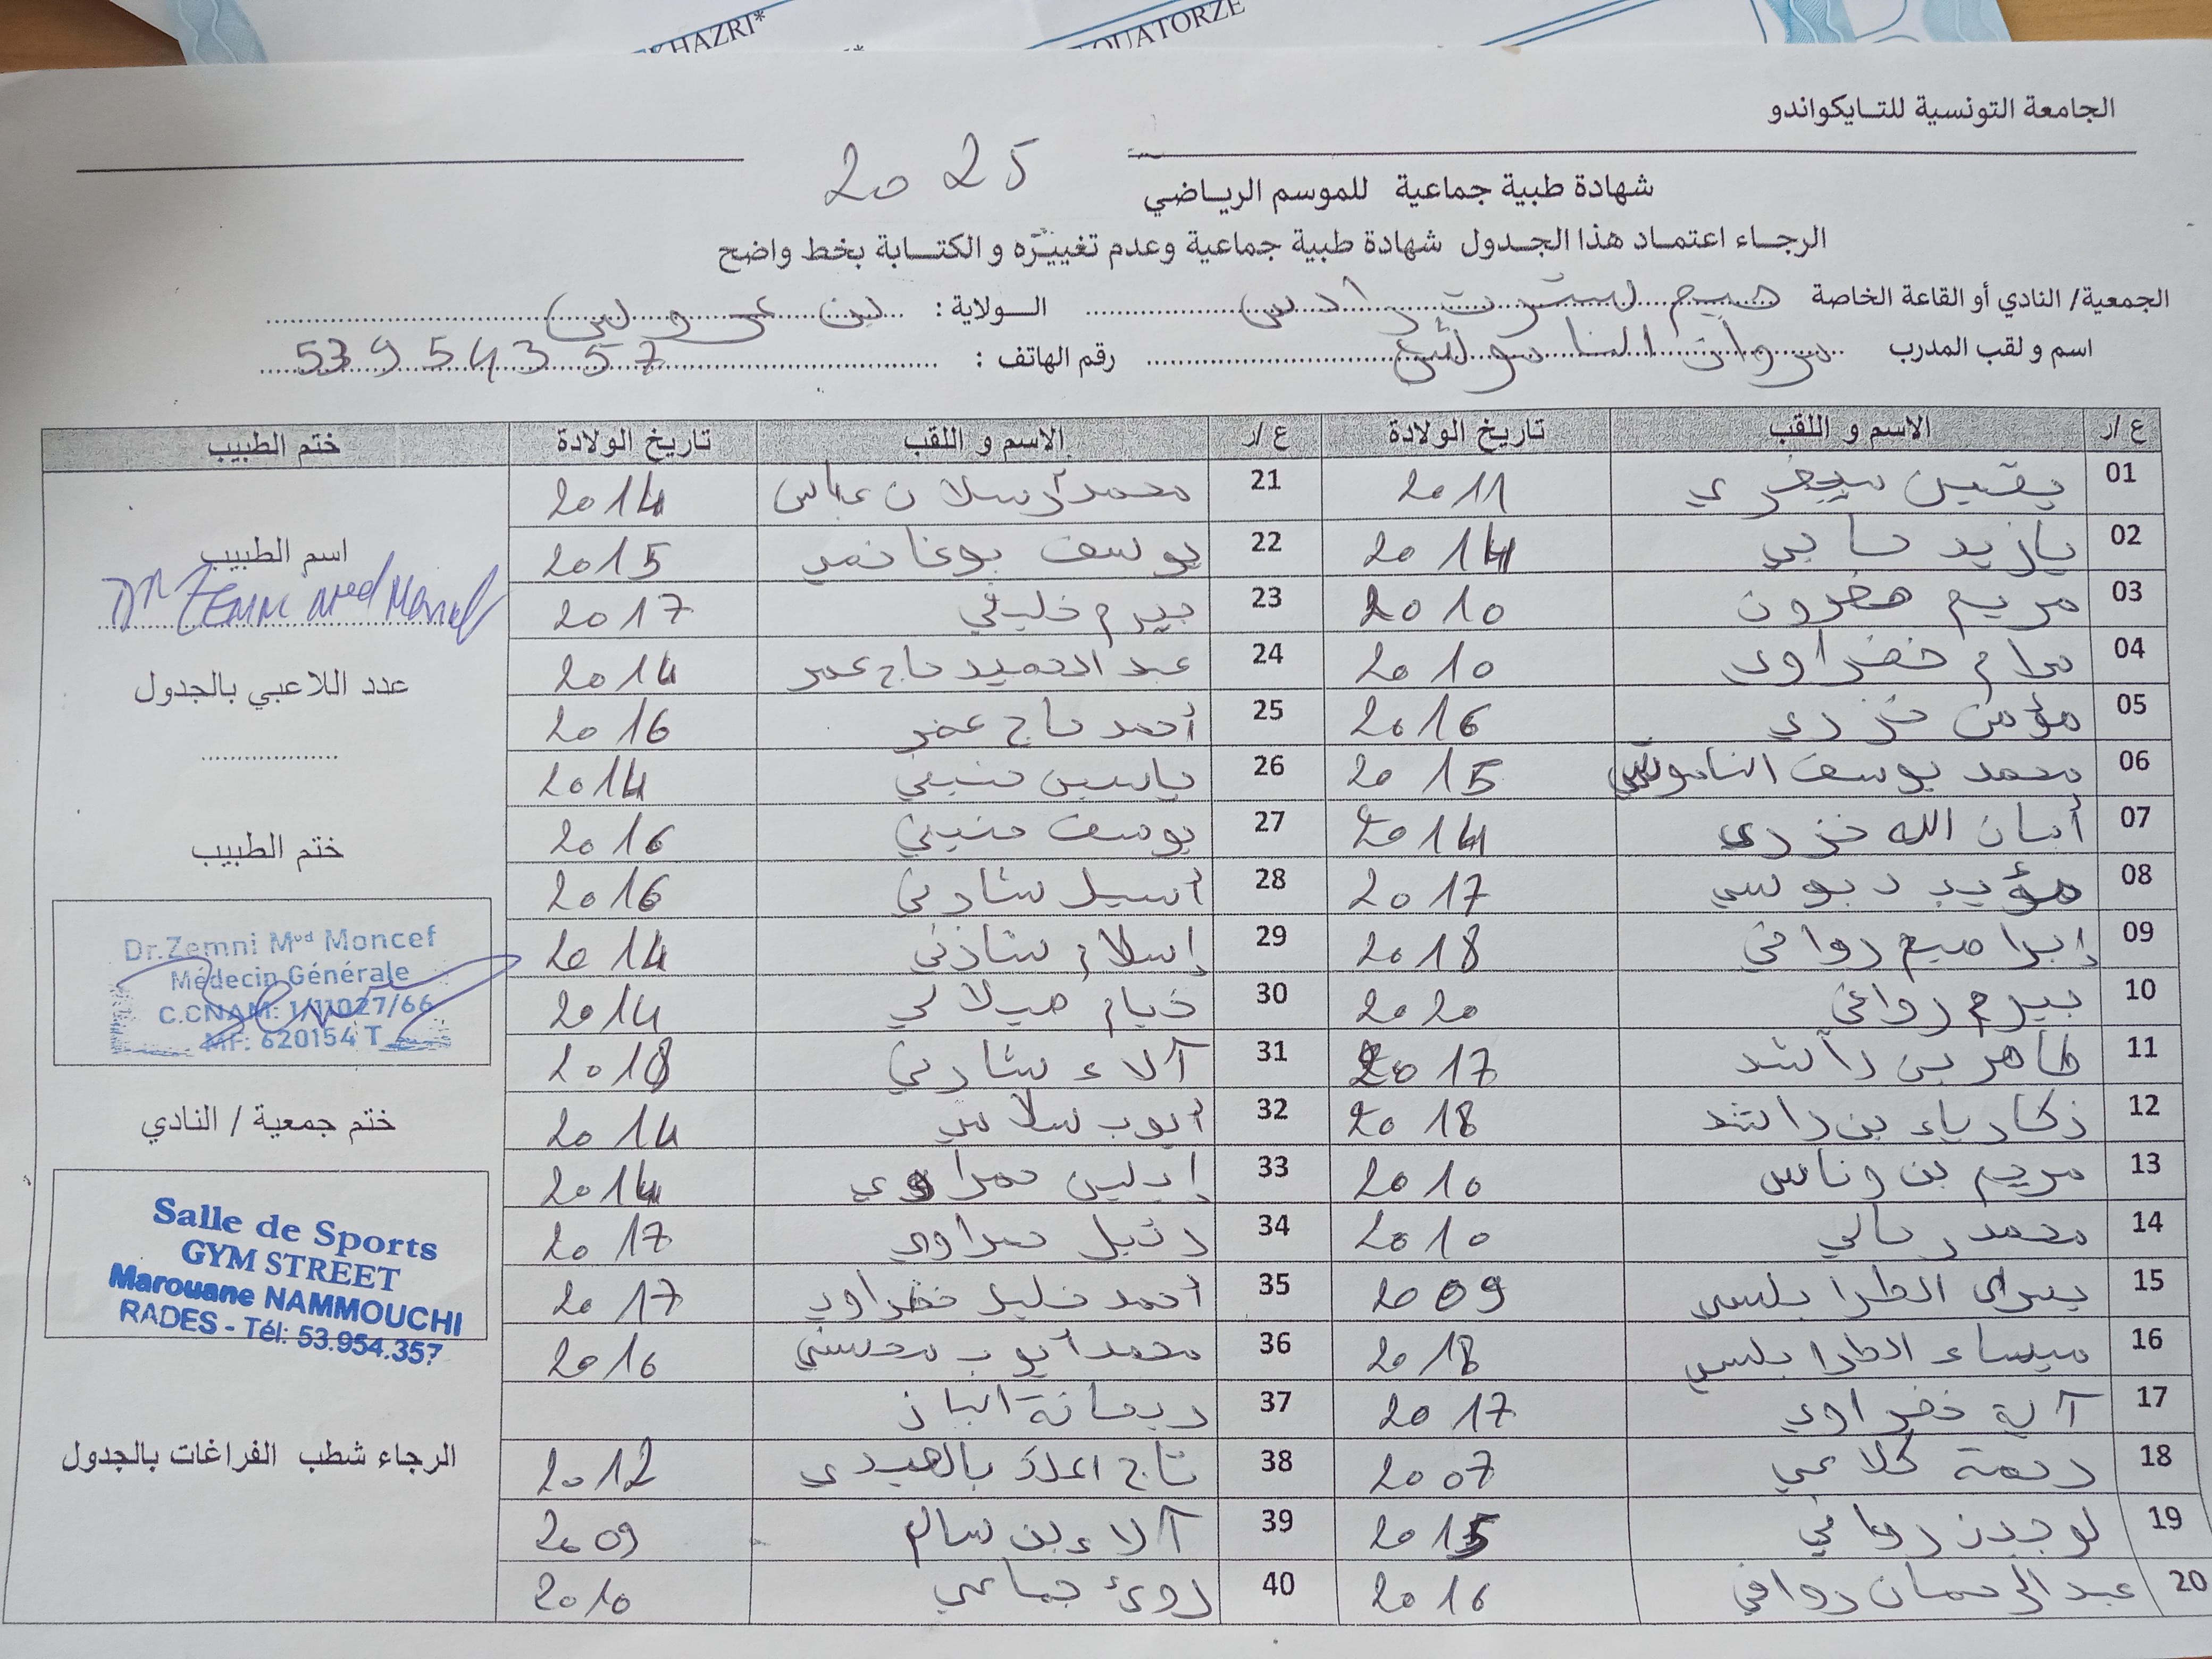 KHAZRI*
QUATORZE
الجامعة التونسية للتايكواندو
2025
شهادة طبية جماعية للموسم الرياضي
الرجاء اعتماد هذا الجدول شهادة طبية جماعية وعدم تغييره و الكتابة بخط واضح
الجمعية/ النادي أو القاعة الخاصة جيم ستريت رادس الولاية : بن عروس
اسم و لقب المدرب مروان الناموشي رقم الهاتف : 53954357
ع /ر الاسم و اللقب تاريخ الولادة ع /ر الاسم و اللقب تاريخ الولادة ختم الطبيب
01 يقين 2011 21 محمد أرسلان عباس 2014
02 يازيد حاجي 2014 22 يوسف بوغانمي 2015
03 مريم خضرون 2010 23 بيرم خليفي 2017
04 مرام خضراوي 2010 24 عبد الحميد حاج عمر 2014
05 مؤمن خزري 2016 25 أحمد حاج عمر 2016
06 محمد يوسف الناموشي 2015 26 ياسين حنيني 2014
07 أمان الله خزري 2014 27 يوسف حنيني 2016
08 مؤيد دبوسي 2017 28 أسيل شارني 2016
09 إبراهيم روافي 2018 29 إسلام شارني 2014
10 بيرم روافي 2020 30 خيام جيلالي 2014
11 طاهر بن راشد 2017 31 آلاء شارني 2018
12 زكارياء بن راشد 2018 32 أيوب سلامي 2014
13 مريم بن وناس 2010 33 إيلين حمراوي 2014
14 محمد رحالي 2010 34 حمراوي 2017
15 يسرى الطرابلسي 2009 35 أحمد خليل خضراوي 2017
16 ميساء الطرابلسي 2018 36 محمد أيوب محسني 2016
17 آية خضراوي 2017 37 ريحانة الباز
18 رحمة كلاعي 2007 38 تاج بالهيدي 2012
19 لوجين روافي 2015 39 آلاء بن سالم 2009
20 عبد الرحمان روافي 2016 40 رؤى جماعي 2010
اسم الطبيب
Dr Zemni Med Moncef
عدد اللاعبي بالجدول
ختم الطبيب
Dr.Zemni Med Moncef
Médecin Générale
C.CNAM: 1/11027/66
MF: 620154 T
ختم جمعية / النادي
Salle de Sports
GYM STREET
Marouane NAMMOUCHI
RADES - Tél: 53.954.357
الرجاء شطب الفراغات بالجدول